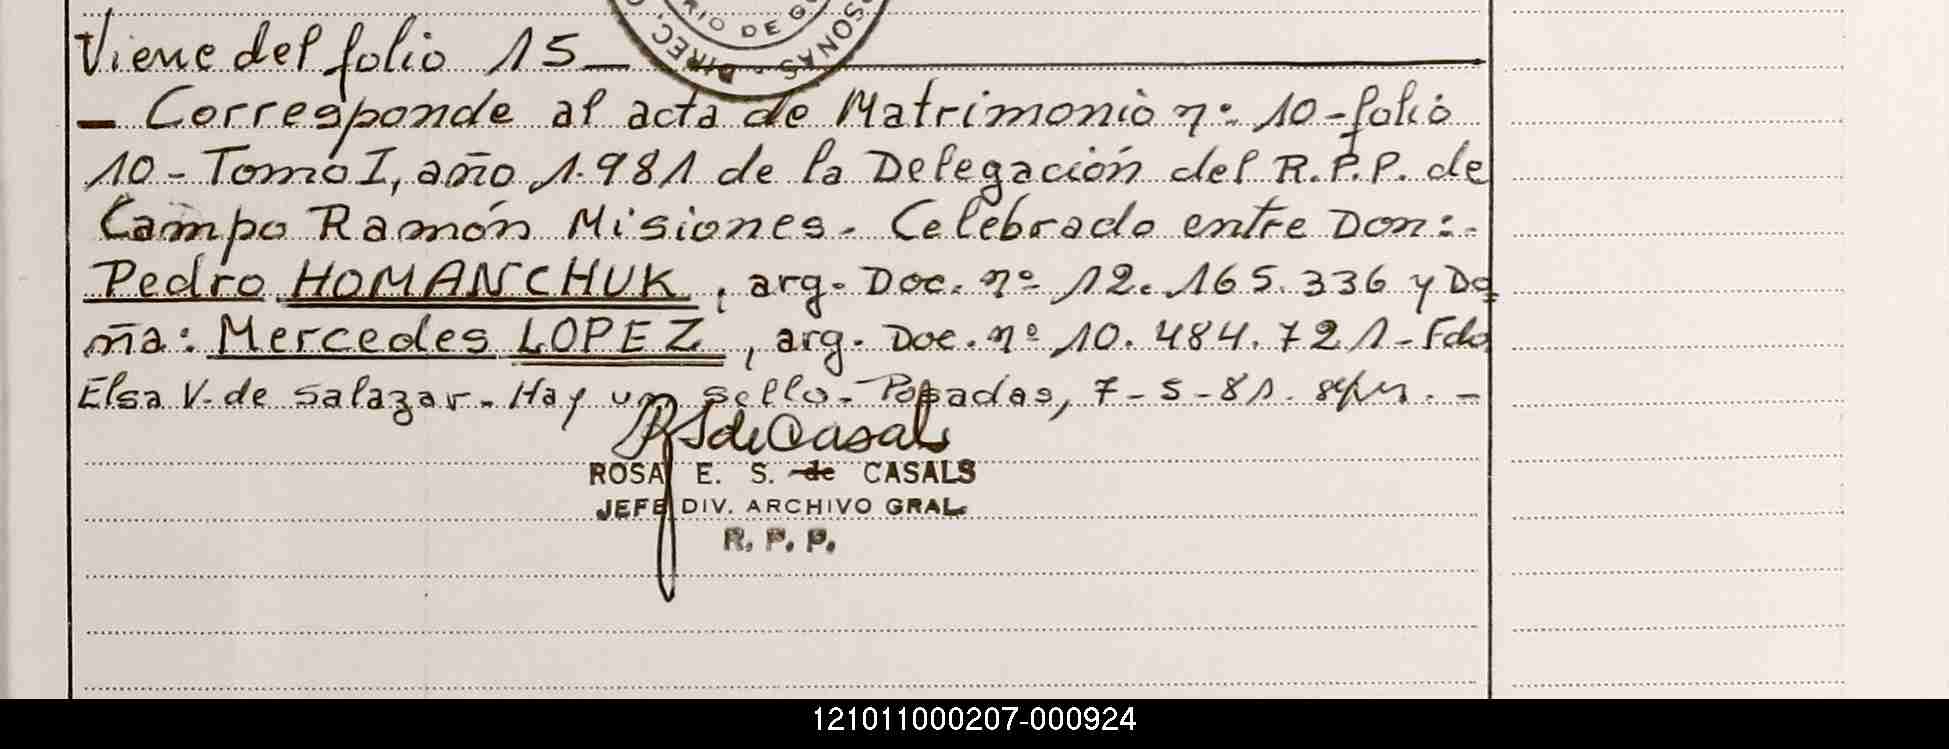 Viene del folio 15 —
— Corresponde al acta de Matrimonio nº 10 - folio
10 - Tomo I, año 1.981 de la Delegación del R.P.P. de
Campo Ramón Misiones. Celebrado entre Don:.
Pedro HOMANCHUK, arg. Doc. nº 12.165.336 y Do
ña: Mercedes LOPEZ, arg. Doc. nº 10.484.721 - Fdo
Elsa V. de Salazar. Hay un sello - Posadas, 7 - 5 - 81.
ROSA E. S. de CASALS
JEFE DIV. ARCHIVO GRAL.
R. P. P.
121011000207-000924